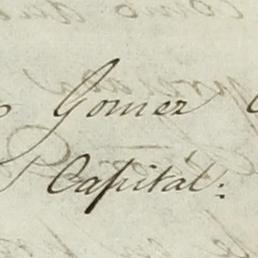 Gomez
Capital: